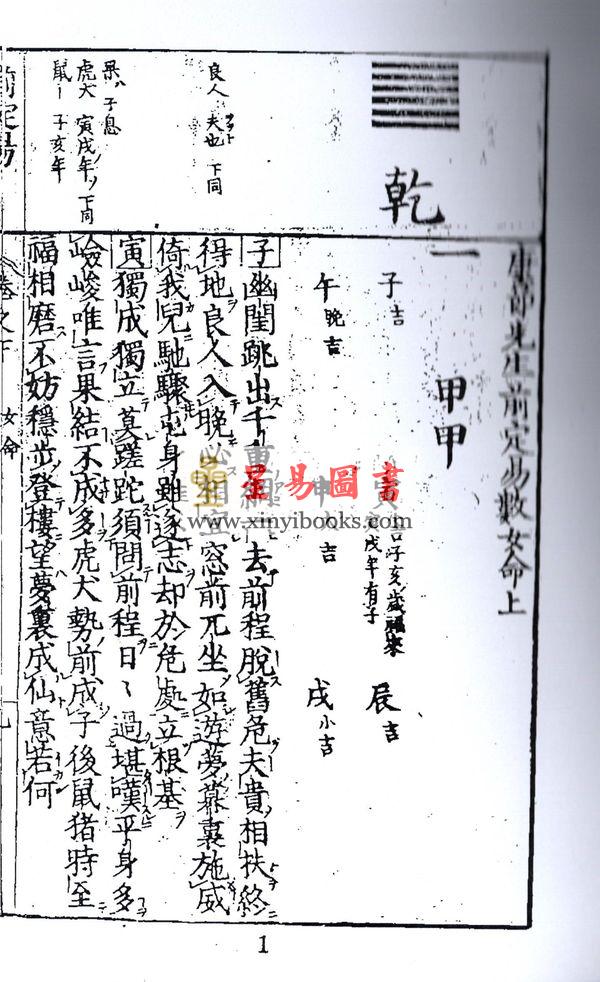 康節先生前定易數女命上
乾
一
甲甲
子吉
吉子亥歲福來
戌年有子
辰吉
午晚吉
申 吉
戌小吉
良人 夫也 下同
果ハ子息
虎犬 寅戌年ノ下同
鼠ー子亥年
子幽閨跳出千重網 去前程脫舊危夫貴相扶終
得地良人入晚必相宜窓前兀坐如遊夢幕裏施威
倚我兒馳驟屯身雖遂志却於危處立根基
寅獨成獨立莫蹉跎須問前程日〻過堪嘆平身多
嶮峻唯言果結不成多虎犬勢前成子後鼠猪時至
福相磨不妨穩步登樓望夢裏成仙意若何
前定易
卷之下 女命
九
星易圖書
www.xinyibooks.com
1